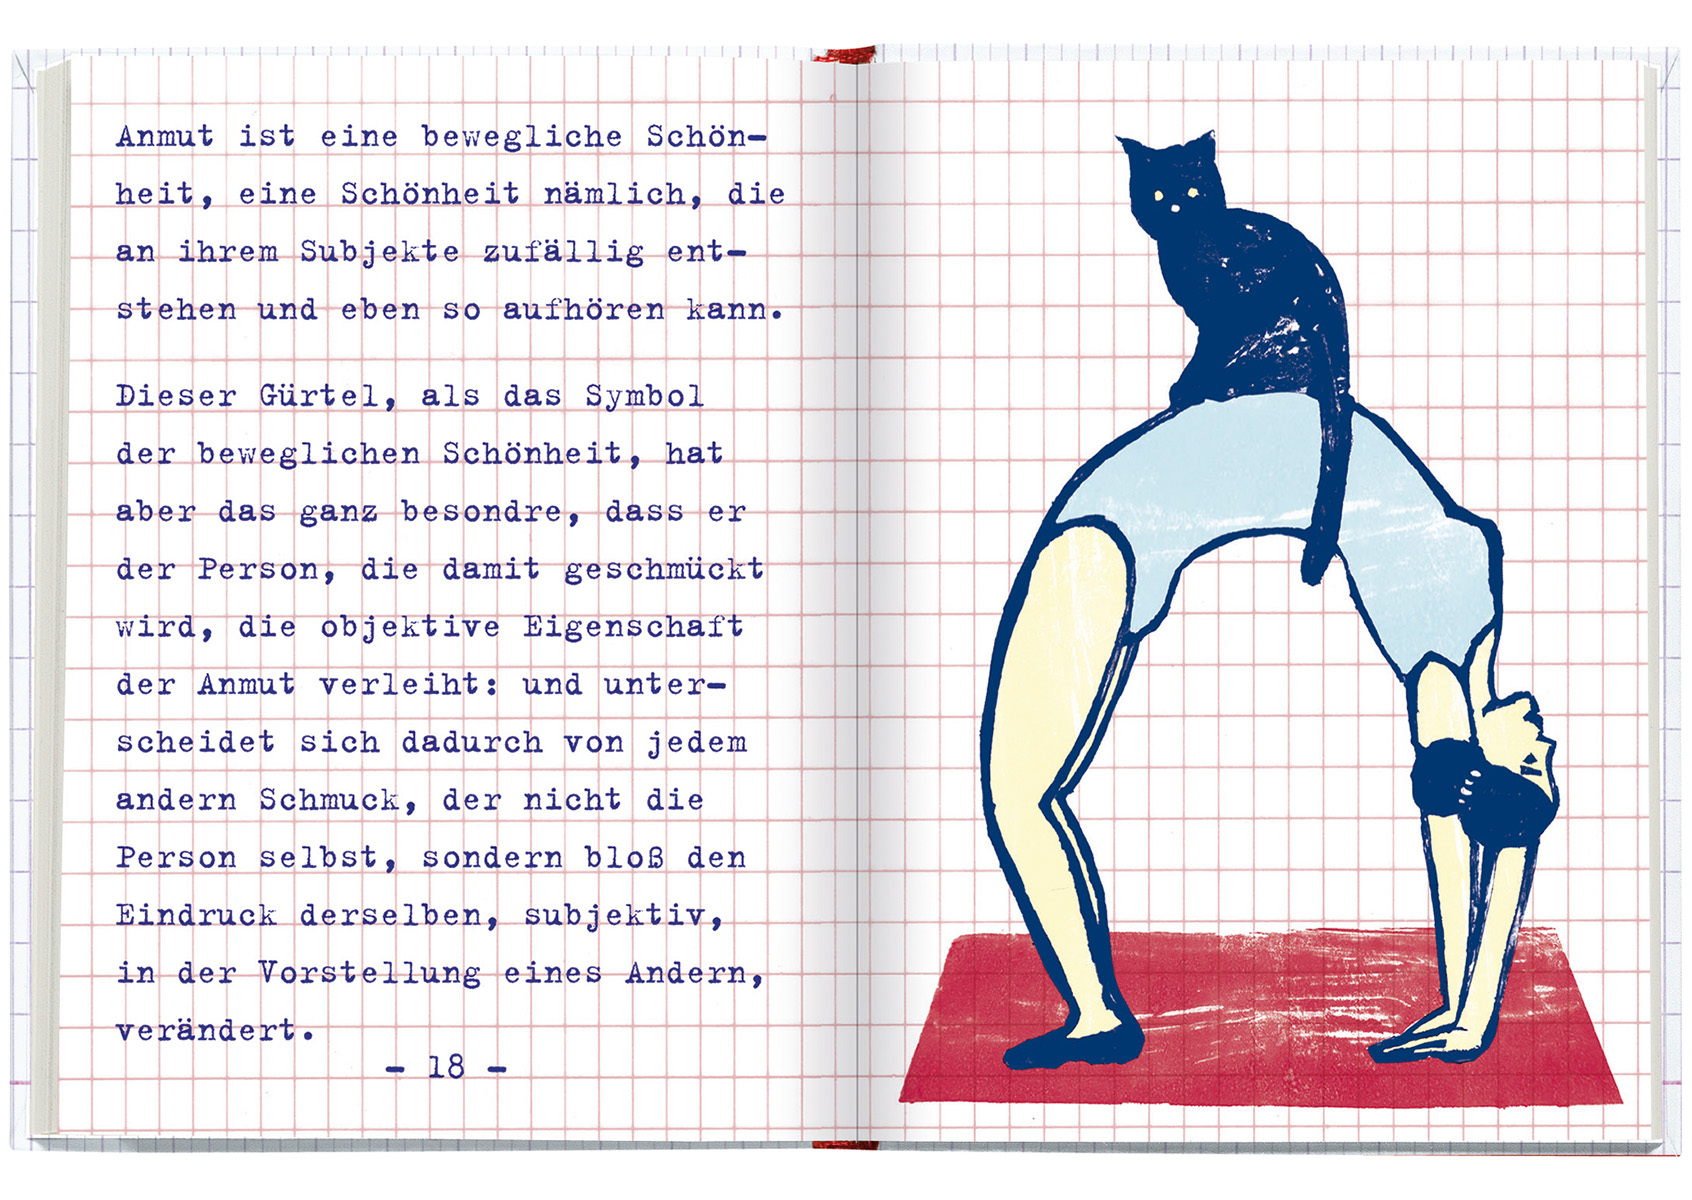 Anmut ist eine bewegliche Schön-
heit, eine Schönheit nämlich, die
an ihrem Subjekte zufällig ent-
stehen und eben so aufhören kann.
Dieser Gürtel, als das Symbol
der beweglichen Schönheit, hat
aber das ganz besondre, dass er
der Person, die damit geschmückt
wird, die objektive Eigenschaft
der Anmut verleiht: und unter-
scheidet sich dadurch von jedem
andern Schmuck, der nicht die
Person selbst, sondern bloß den
Eindruck derselben, subjektiv,
in der Vorstellung eines Andern,
verändert.
- 18 -